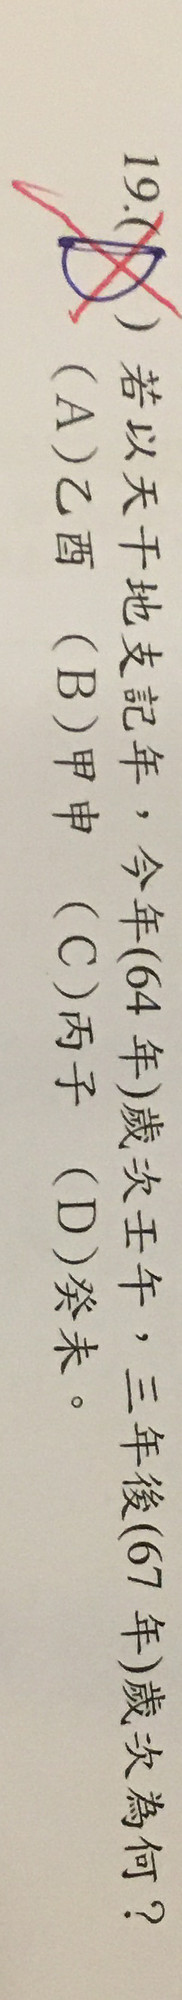 19.(D) 若以天干地支記年，今年(64 年)歲次壬午，三年後(67 年)歲次為何？
(A)乙酉 (B)甲申 (C)丙子 (D)癸未。